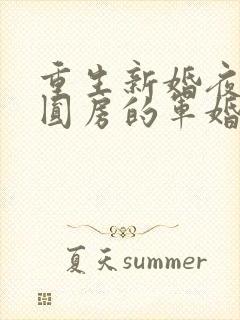 重生新婚夜
圆房的军婚
夏天summer